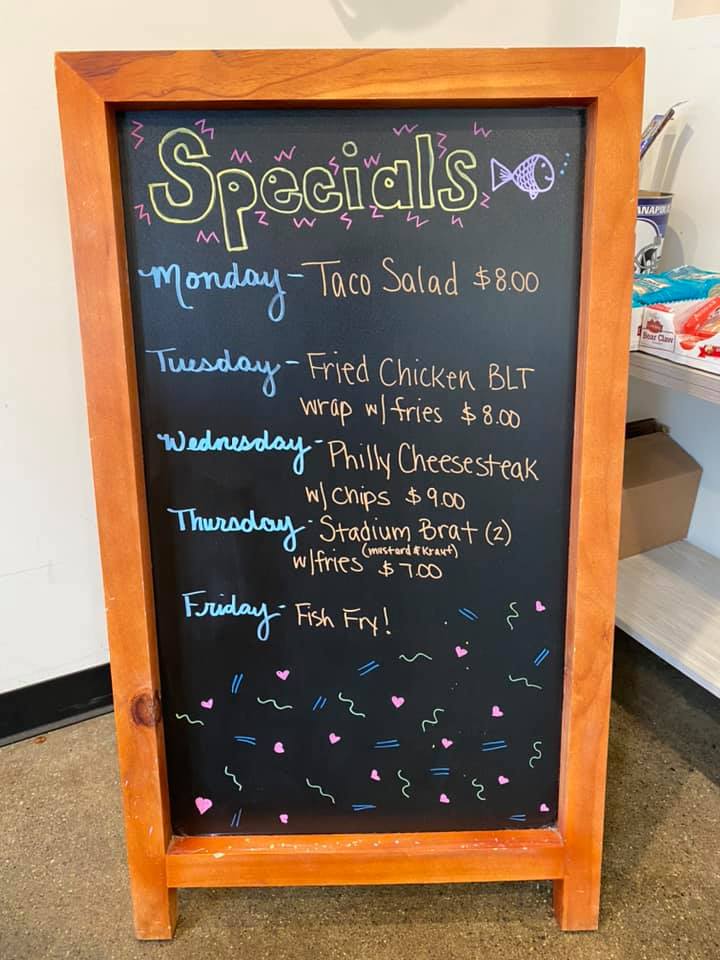 Specials
Monday - Taco Salad $8.00
Tuesday - Fried Chicken BLT
wrap w/ fries $8.00
Wednesday - Philly Cheesesteak
w/ chips $9.00
Thursday - Stadium Brat (2)
(mustard & kraut)
w/fries $7.00
Friday - Fish Fry!
ANAPOL
Bear Claw